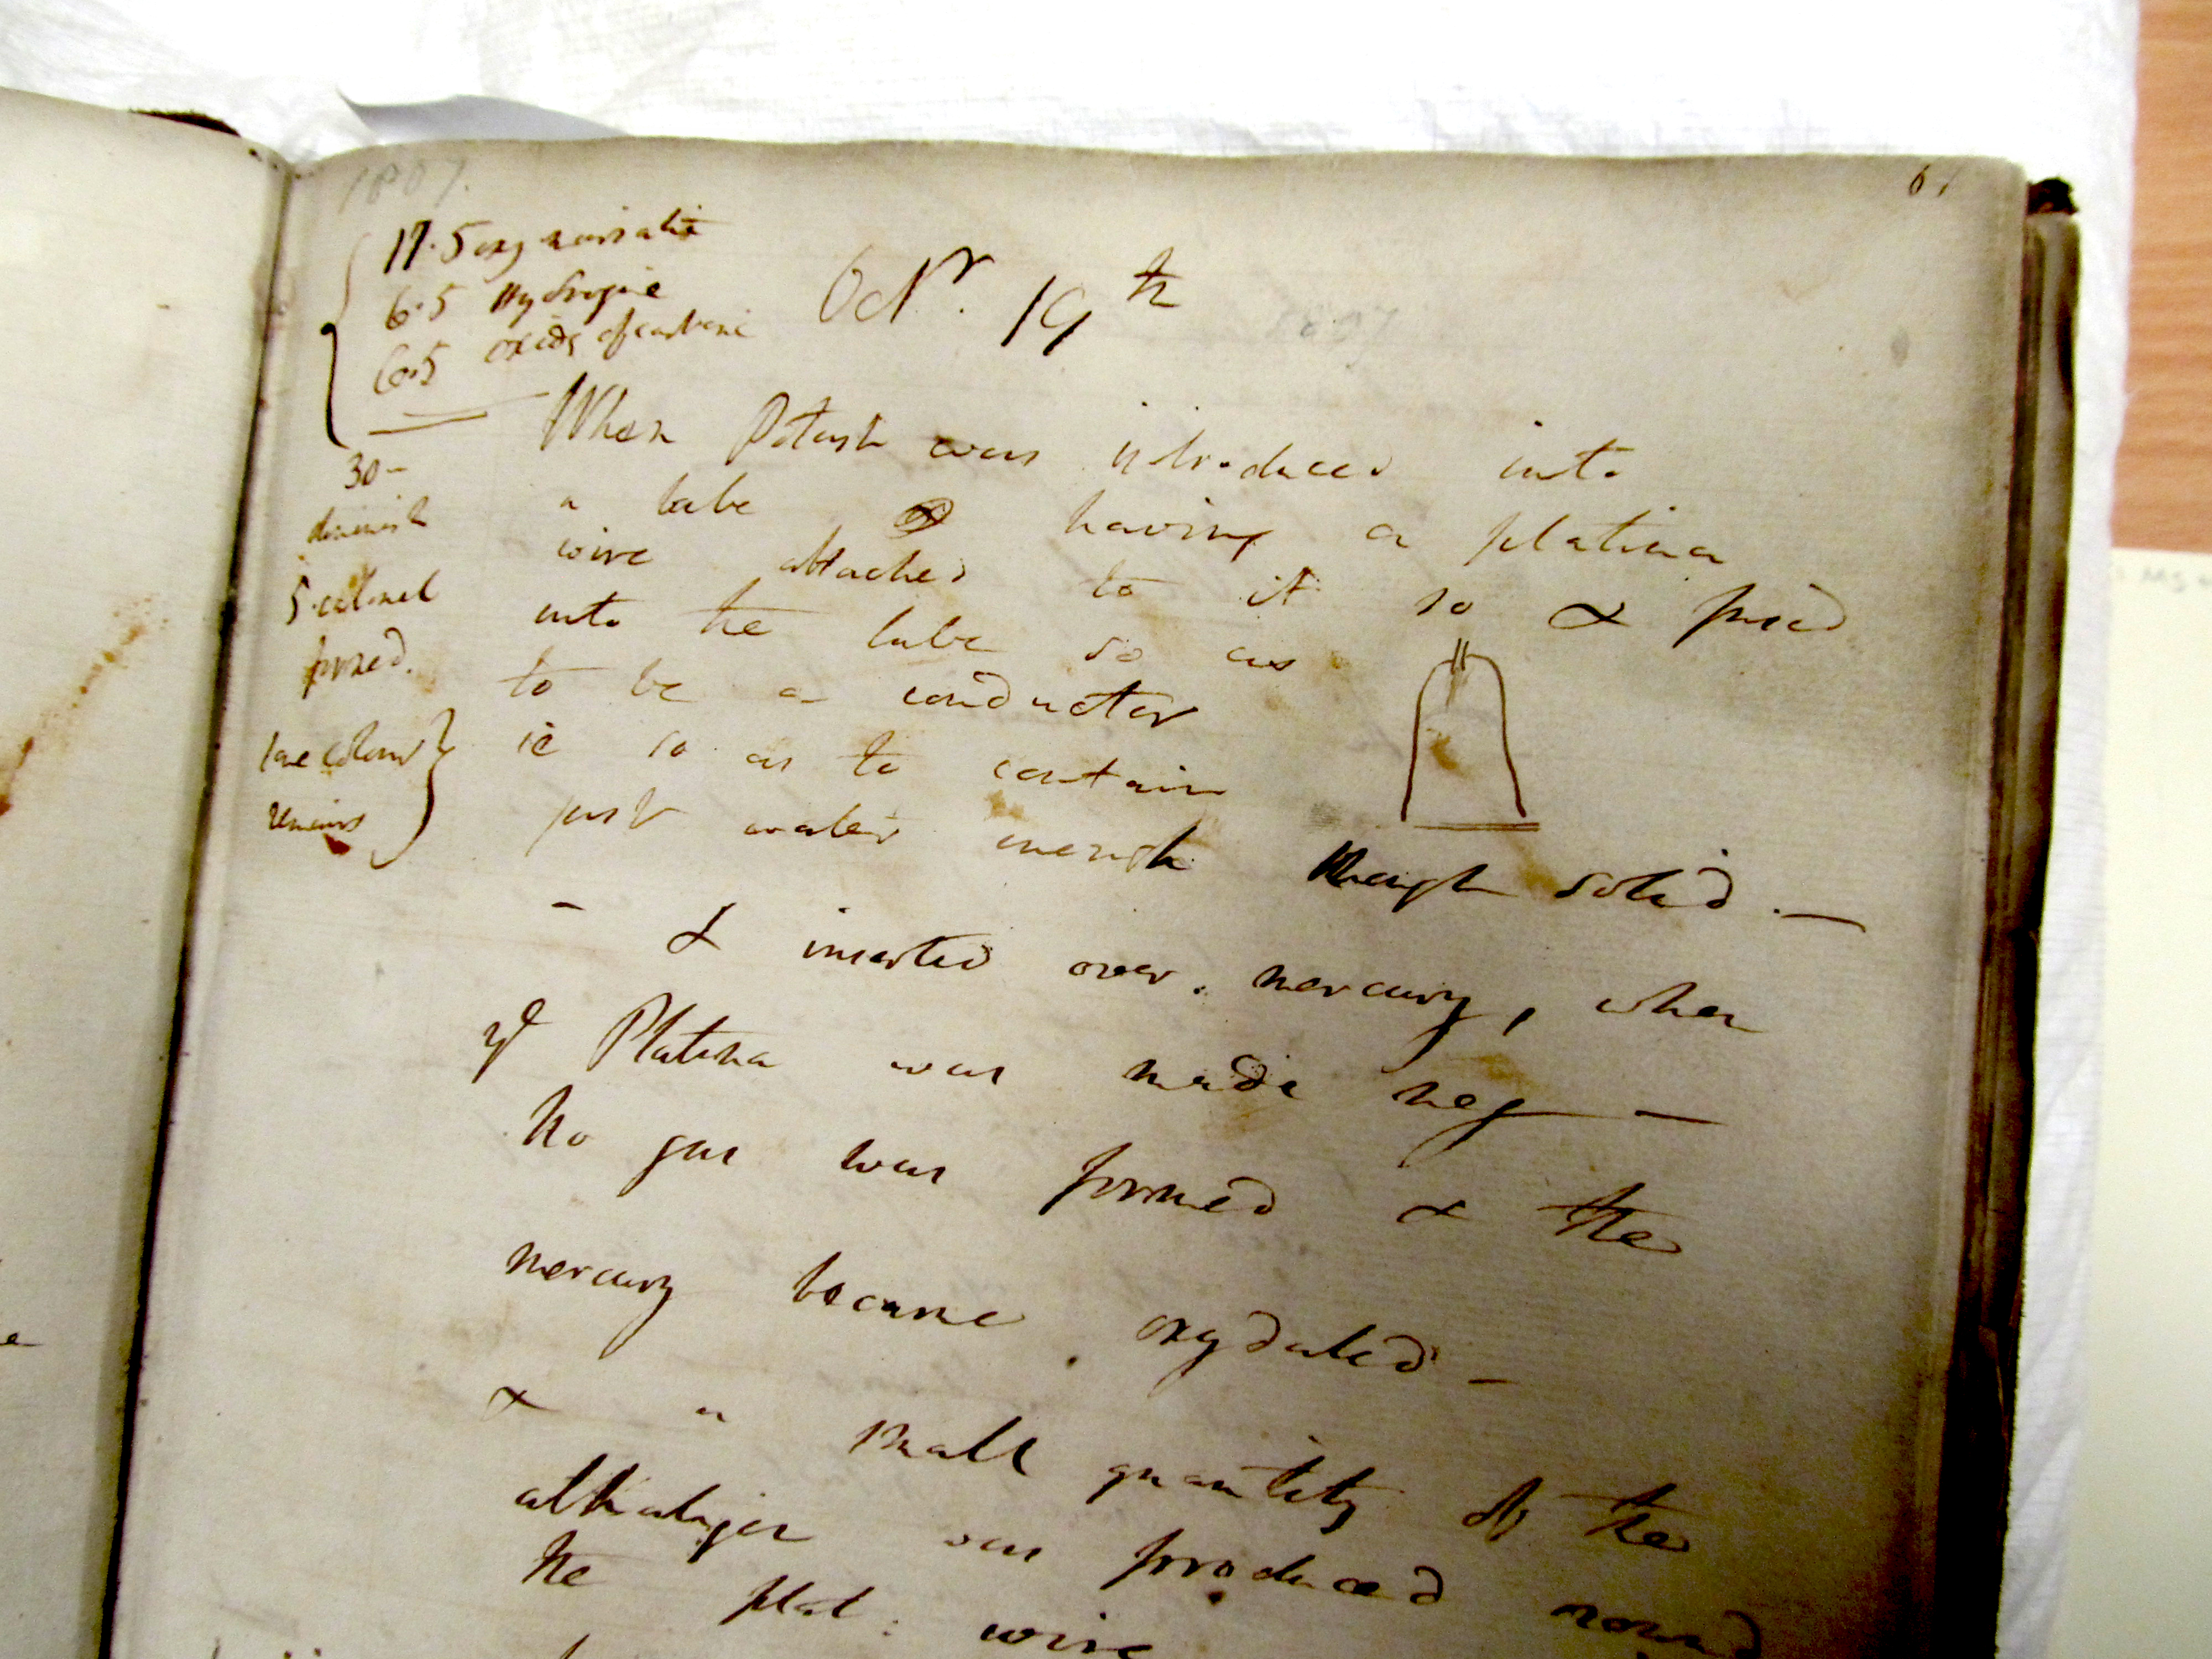 1807.
61
17.5 oxy muriatic
6.5 Hydrogine
6.5 oxide of carbonic
30 -
diminish
5. calomel
formed.
remains
Octr. 19th
1807
When Potash was introduced into
a tube having a platina
wire attached to it so & fused
into the tube so as
to be a conductor
ie so as to contain
just water enough though solid. —
- & inserted over. mercury, when
ye Platina was made neg —
No gas was formed & the
mercury became oxydated -
& a small quantity of the
alkaligen was produced round
the plat: wire